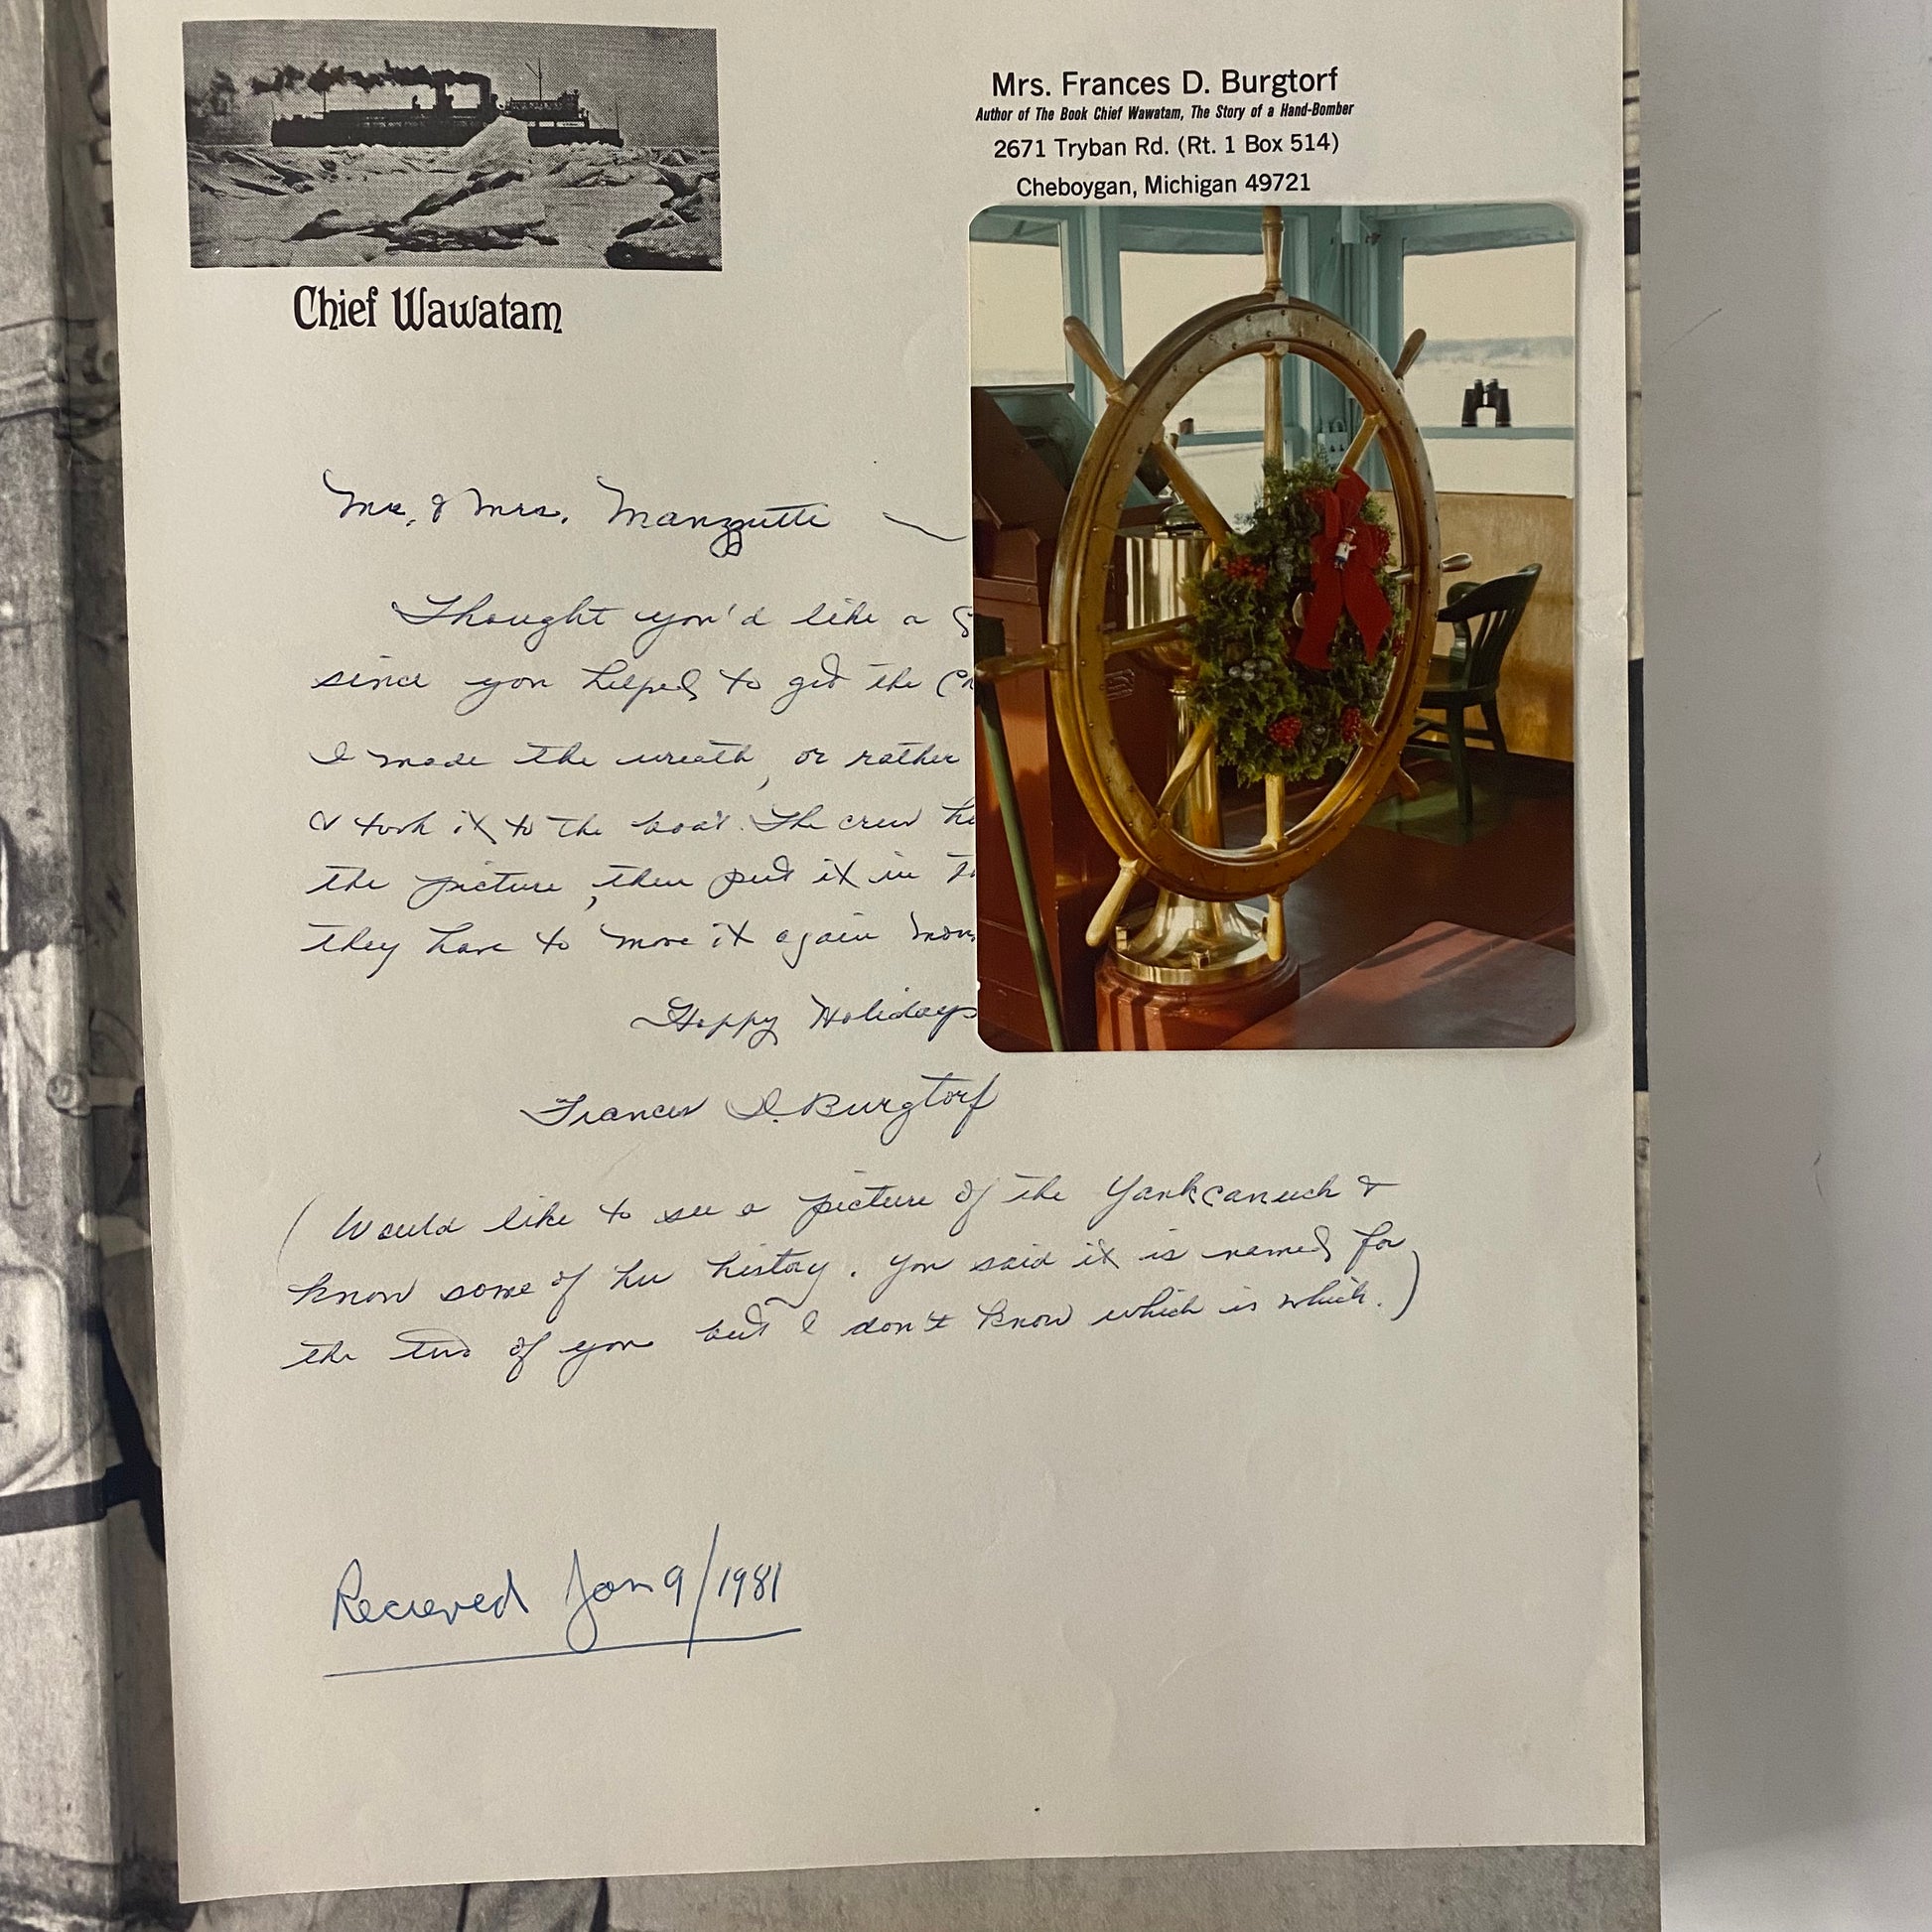 Mrs. Frances D. Burgtorf
Author of The Book Chief Wawatam, The Story of a Hand-Bomber
2671 Tryban Rd. (Rt. 1 Box 514)
Cheboygan, Michigan 49721
Chief Wawatam
Mr. & Mrs. Manzzutti
Thought you'd like a
since you helped to get the
I made the wreath, or rather
& took it to the boat. The crew
the picture, then put it in
they have to move it again
Happy Holidays
Frances D. Burgtorf
(Would like to see a picture of the Yankcanuck &
know some of her history. You said it is named for
the two of you but I don't know which is which.)
Recieved Jan 9/1981